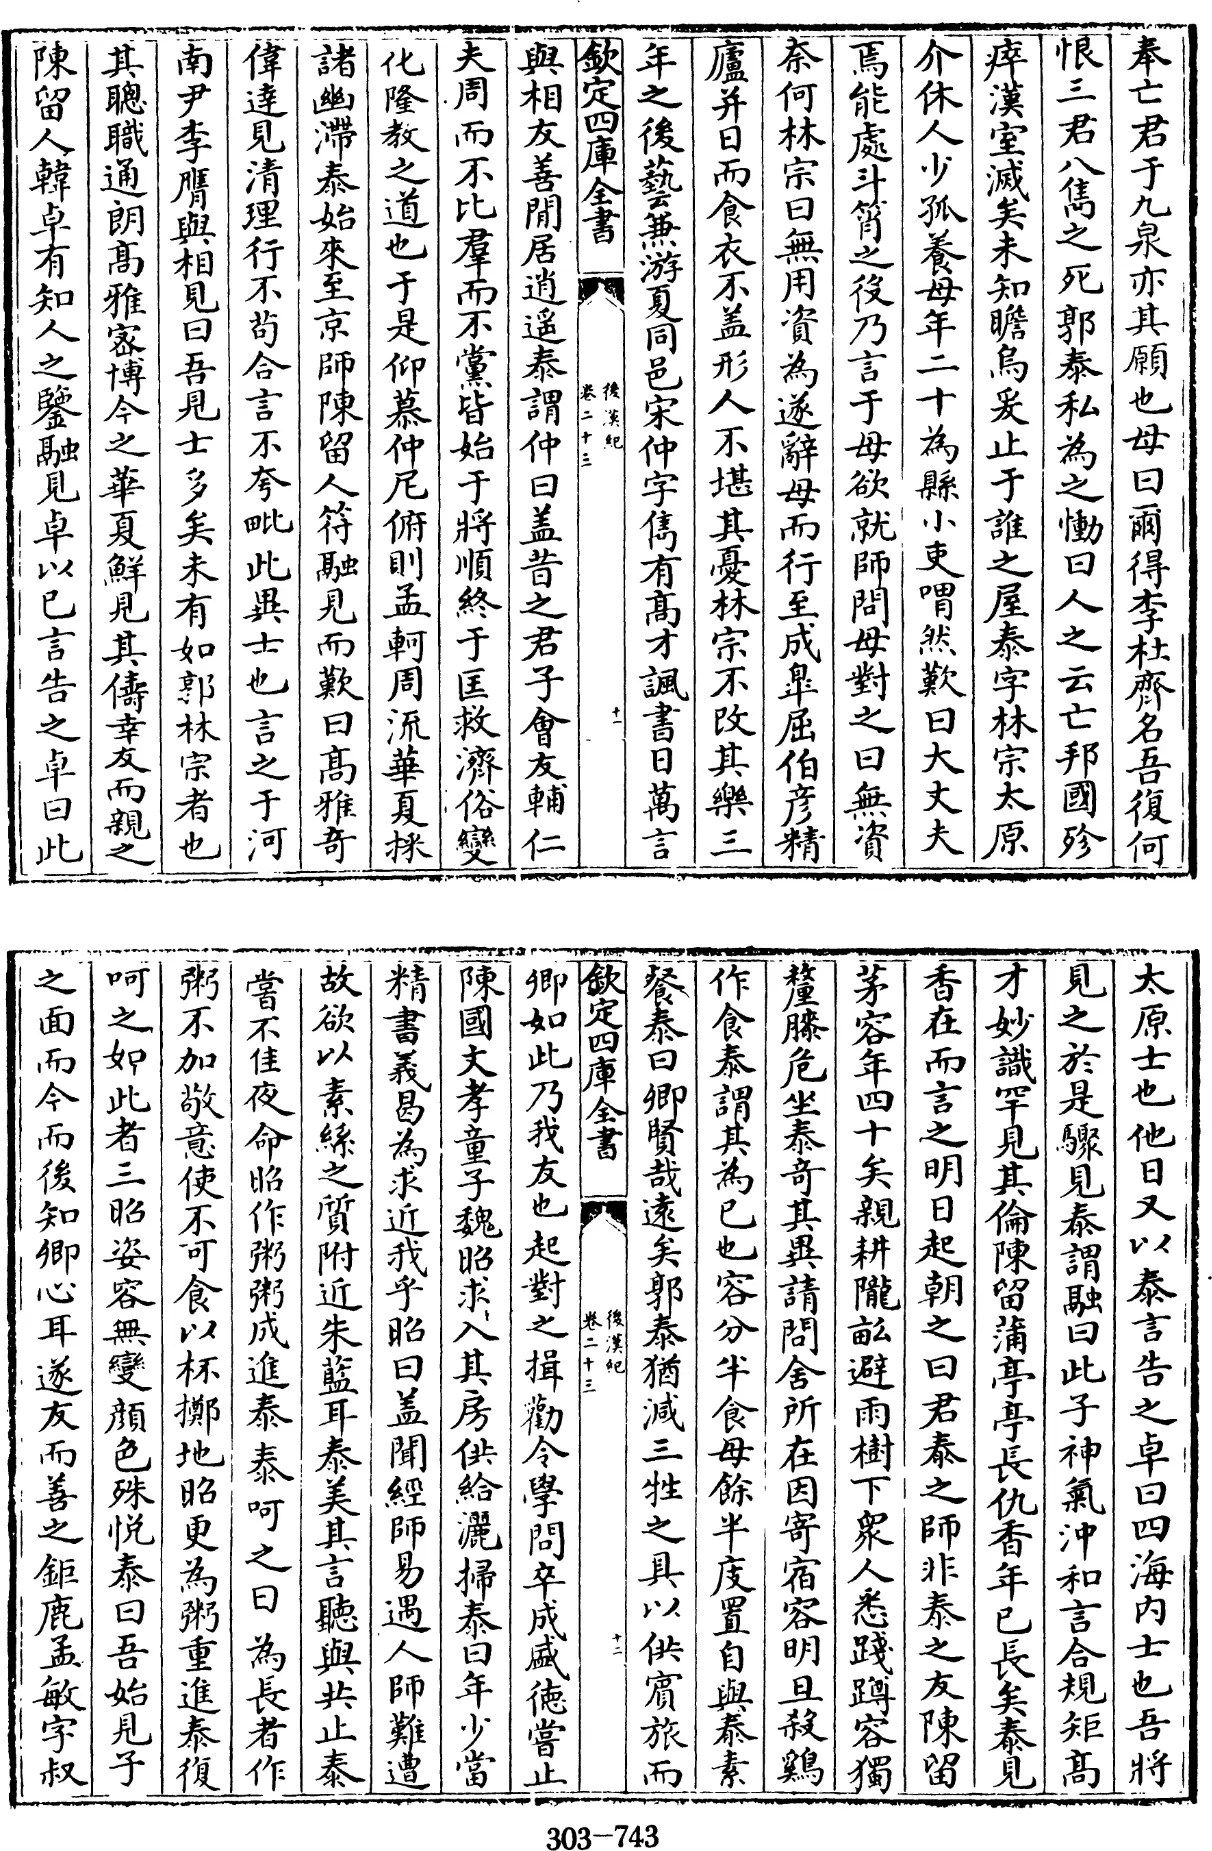 奉亡君于九泉亦其願也母曰爾得李杜齊名吾復何
恨三君八雋之死郭泰私為之慟曰人之云亡邦國殄
瘁漢室滅矣未知瞻烏爰止于誰之屋泰字林宗太原
介休人少孤養母年二十為縣小吏喟然歎曰大丈夫
焉能處斗筲之役乃言于母欲就師問母對之曰無資
奈何林宗曰無用資為遂辭母而行至成臯屈伯彦精
廬并日而食衣不盖形人不堪其憂林宗不改其樂三
年之後藝兼游夏同邑宋仲字儁有高才諷書日萬言
欽定四庫全書
後漢紀
卷二十三
十一
與相友善閒居逍遥泰謂仲曰盖昔之君子會友輔仁
夫周而不比羣而不黨皆始于將順終于匡救濟俗變
化隆教之道也于是仰慕仲尼俯則孟軻周流華夏採
諸幽滯泰始來至京師陳留人符融見而歎曰高雅奇
偉達見清理行不茍合言不夸毗此異士也言之于河
南尹李膺與相見曰吾見士多矣未有如郭林宗者也
其聰職通朗高雅密博今之華夏鮮見其儔幸友而親之
陳留人韓卓有知人之鑒融見卓以已言告之卓曰此
太原士也他日又以泰言告之卓曰四海内士也吾將
見之於是驟見泰謂融曰此子神氣沖和言合規矩高
才妙識罕見其倫陳留蒲亭亭長仇香年已長矣泰見
香在而言之明日起朝之曰君泰之師非泰之友陳留
茅容年四十矣親耕隴畝避雨樹下衆人悉踐蹲容獨
釐膝危坐泰奇其異請問舍所在因寄宿容明旦殺鷄
作食泰謂其為已也容分半食母餘半庋置自與泰素
餐泰曰卿賢哉遠矣郭泰猶減三牲之具以供賔旅而
欽定四庫全書
後漢紀
卷二十三
十二
卿如此乃我友也起對之揖勸令學問卒成盛徳嘗止
陳國文孝童子魏昭求入其房供給灑掃泰曰年少當
精書義曷為求近我乎昭曰盖聞經師易遇人師難遭
故欲以素絲之質附近朱藍耳泰美其言聽與共止泰
嘗不佳夜命昭作粥粥成進泰泰呵之曰為長者作
粥不加敬意使不可食以杯擲地昭更為粥重進泰復
呵之如此者三昭姿容無變顔色殊悦泰曰吾始見子
之面而今而後知卿心耳遂友而善之鉅鹿孟敏字叔
303-743